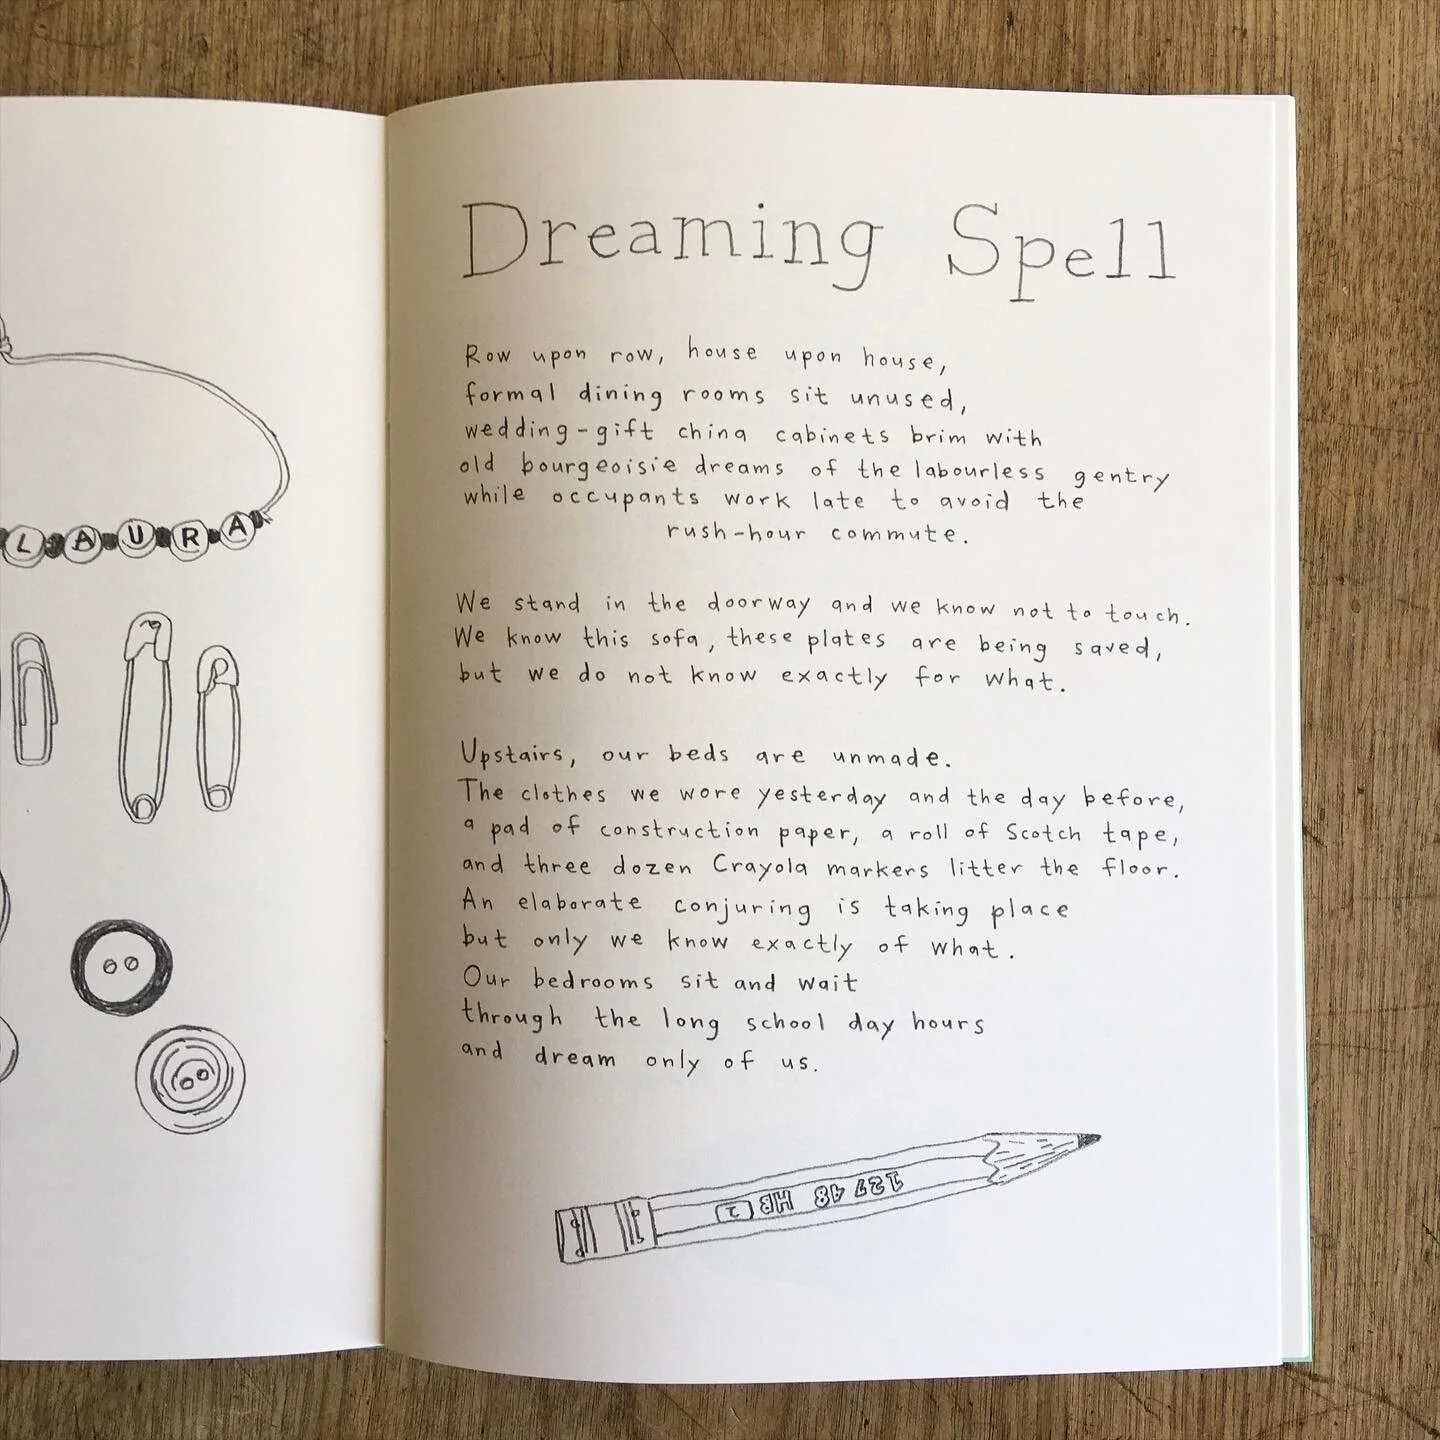 LAURA
Dreaming Spell
Row upon row, house upon house,
formal dining rooms sit unused,
wedding-gift china cabinets brim with
old bourgeoisie dreams of the labourless gentry
while occupants work late to avoid the
rush-hour commute.
We stand in the doorway and we know not to touch.
We know this sofa, these plates are being saved,
but we do not know exactly for what.
Upstairs, our beds are unmade.
The clothes we wore yesterday and the day before,
a pad of construction paper, a roll of Scotch tape,
and three dozen Crayola markers litter the floor.
An elaborate conjuring is taking place
but only we know exactly of what.
Our bedrooms sit and wait
through the long school day hours
and dream only of us.
127 48 HB 2